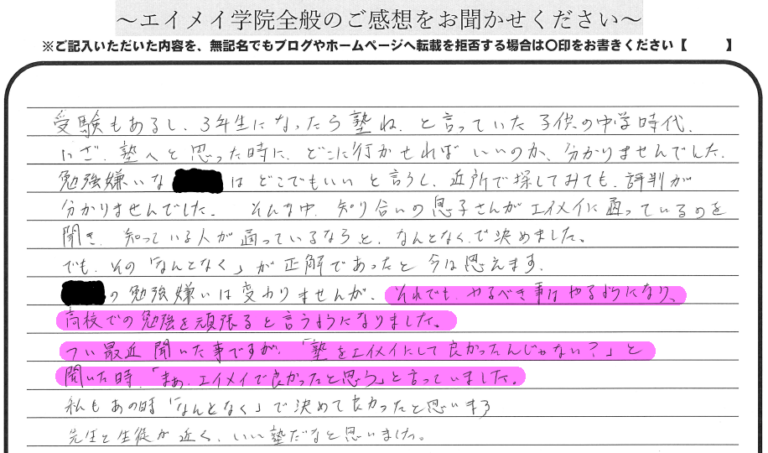 ～エイメイ学院全般のご感想をお聞かせください～
※ご記入いただいた内容を、無記名でもブログやホームページへ転載を拒否する場合は〇印をお書きください【　　　】
受験もあるし、3年生になったら塾ね、と言っていた子供の中学時代、
いざ、塾へと思った時に、どこに行かせればいいのか、分かりませんでした。
勉強嫌いな　　　はどこでもいいと言うし、近所で探してみても、評判が
分かりませんでした。そんな中、知り合いの息子さんがエイメイに通っているのを
聞き、知っている人が通っているならと、なんとなくで決めました。
でも、その「なんとなく」が正解であったと今は思えます。
の勉強嫌いは変わりませんが、それでも、やるべき事はやるようになり、
高校での勉強を頑張ると言うようになりました。
つい最近聞いた事ですが、「塾をエイメイにして良かったんじゃない？」と
聞いた時、「まぁ、エイメイで良かったと思う」と言っていました。
私もあの時「なんとなく」で決めて良かったと思います
先生と生徒が近く、いい塾だなと思いました。